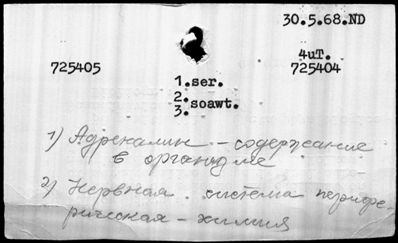 30.5.68.ND
4uT.
725405
725404
1.ser.
2.soawt.
3.
1) Адреналин - содержание
в организме
2) Нервная система перифе
рическая - химия